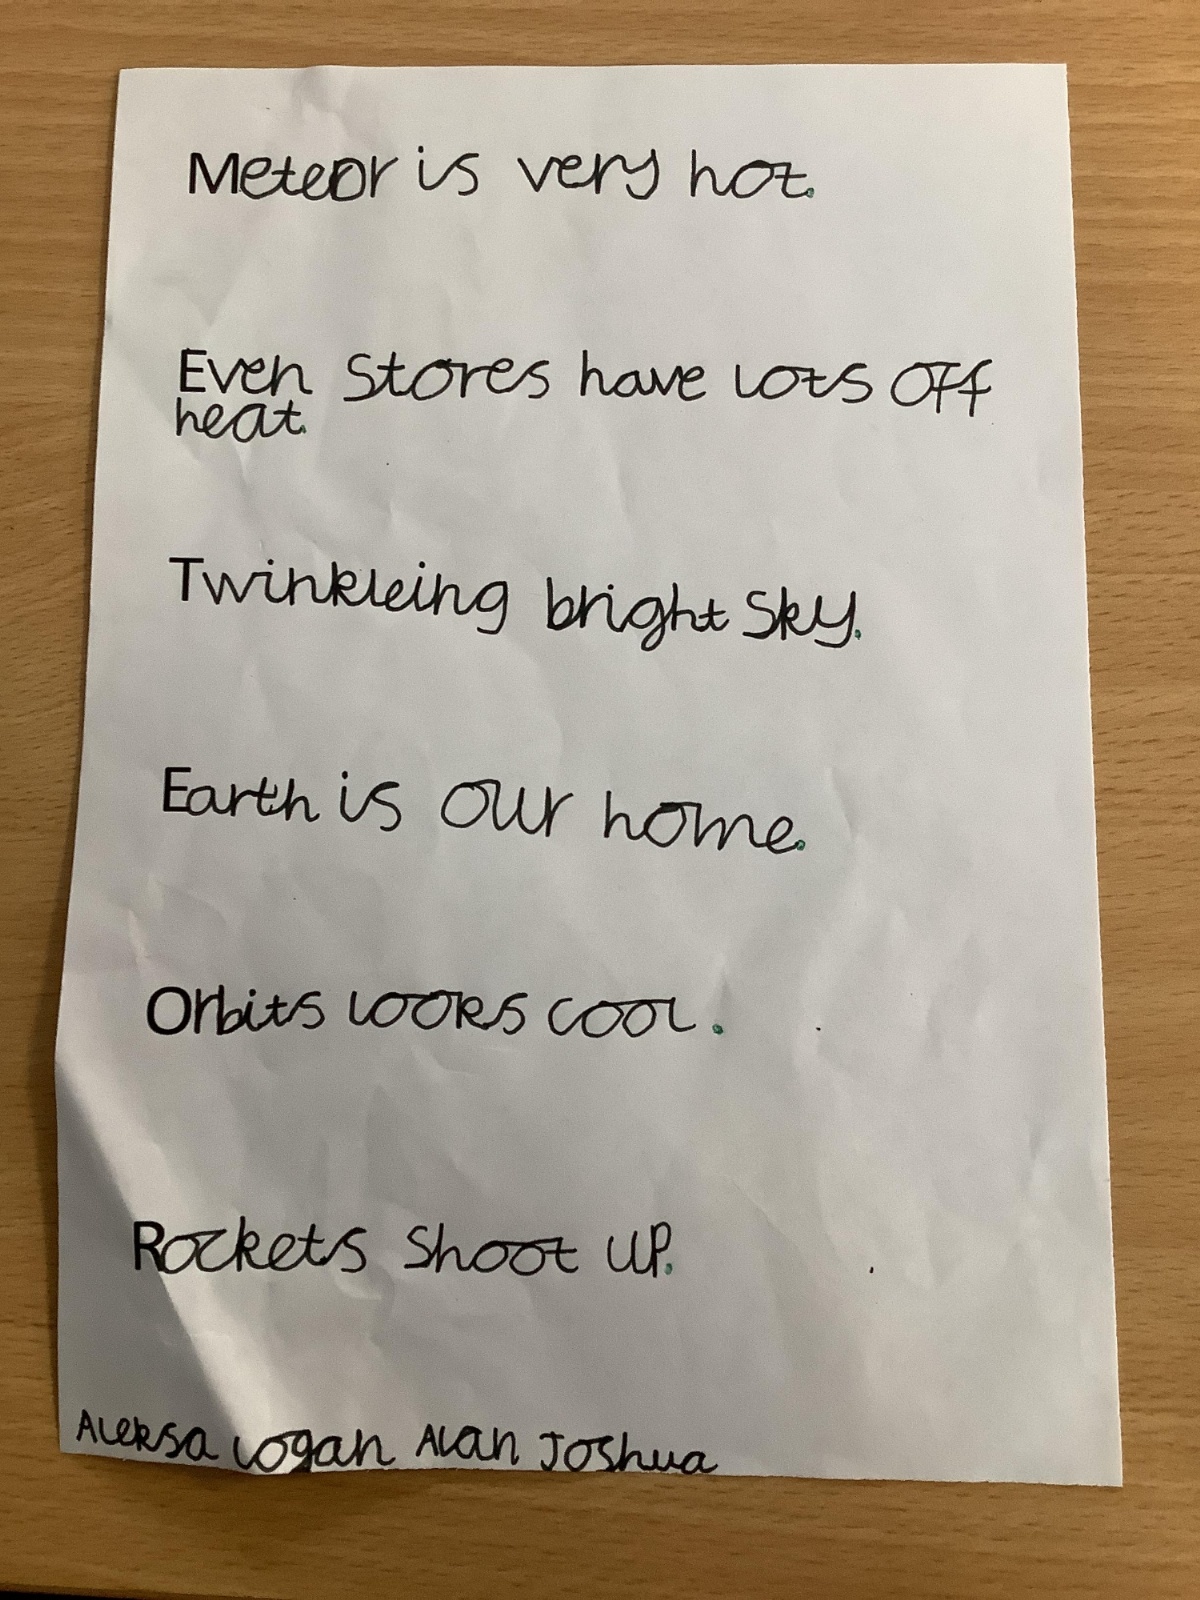 Meteor is very hot.
Even Stores have lots off
heat.
Twinkleing bright Sky.
Earth is our home.
Orbits looks cool.
Rockets Shoot up.
Aleksa Logan Alan Joshua